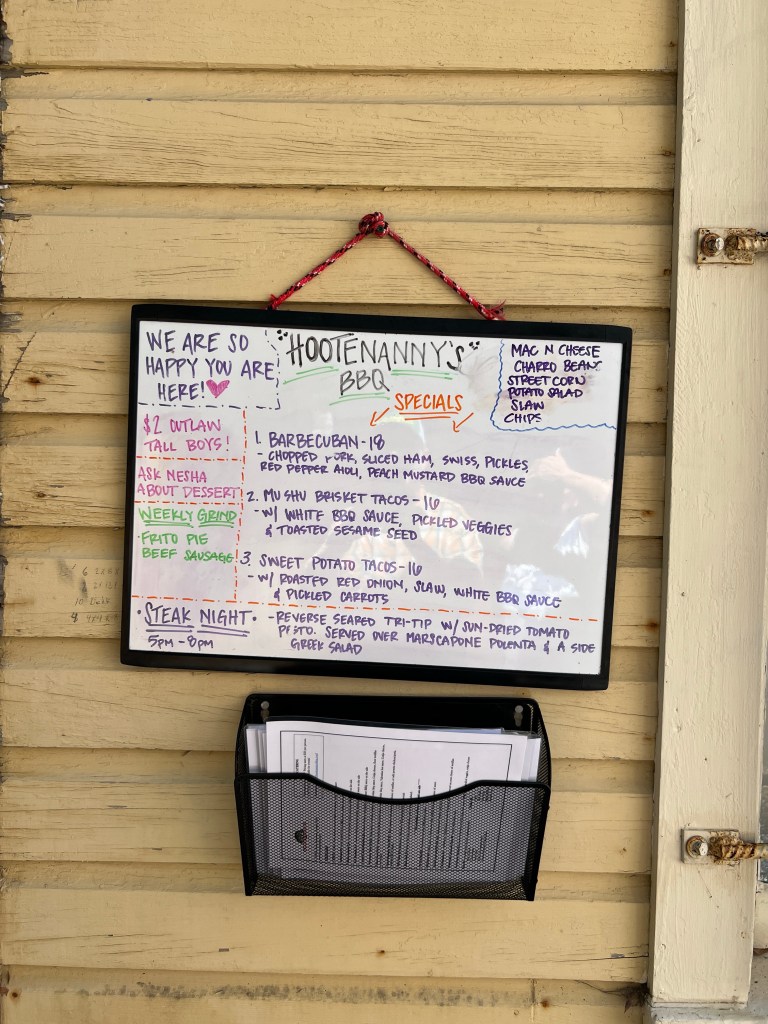 WE ARE SO
HAPPY YOU ARE
HERE!
HOOTENANNY'S
BBQ
SPECIALS
MAC N CHEESE
CHARRO BEANS
STREET CORN
POTATO SALAD
SLAW
CHIPS
$2 OUTLAW
TALL BOYS!
ASK NESHA
ABOUT DESSERT
WEEKLY GRIND
·FRITO PIE
BEEF SAUSAGE
1. BARBECUBAN-18
- CHOPPED PORK, SLICED HAM, SWISS, PICKLES,
RED PEPPER AIOLI, PEACH MUSTARD BBQ SAUCE
2. MU SHU BRISKET TACOS-16
- W/ WHITE BBQ SAUCE, PICKLED VEGGIES
& TOASTED SESAME SEED
3. SWEET POTATO TACOS-16
- W/ ROASTED RED ONION, SLAW, WHITE BBQ SAUCE
& PICKLED CARROTS
·STEAK NIGHT·
5PM-8PM
- REVERSE SEARED TRI-TIP W/ SUN-DRIED TOMATO
PESTO. SERVED OVER MARSCAPONE POLENTA & A SIDE
GREEK SALAD